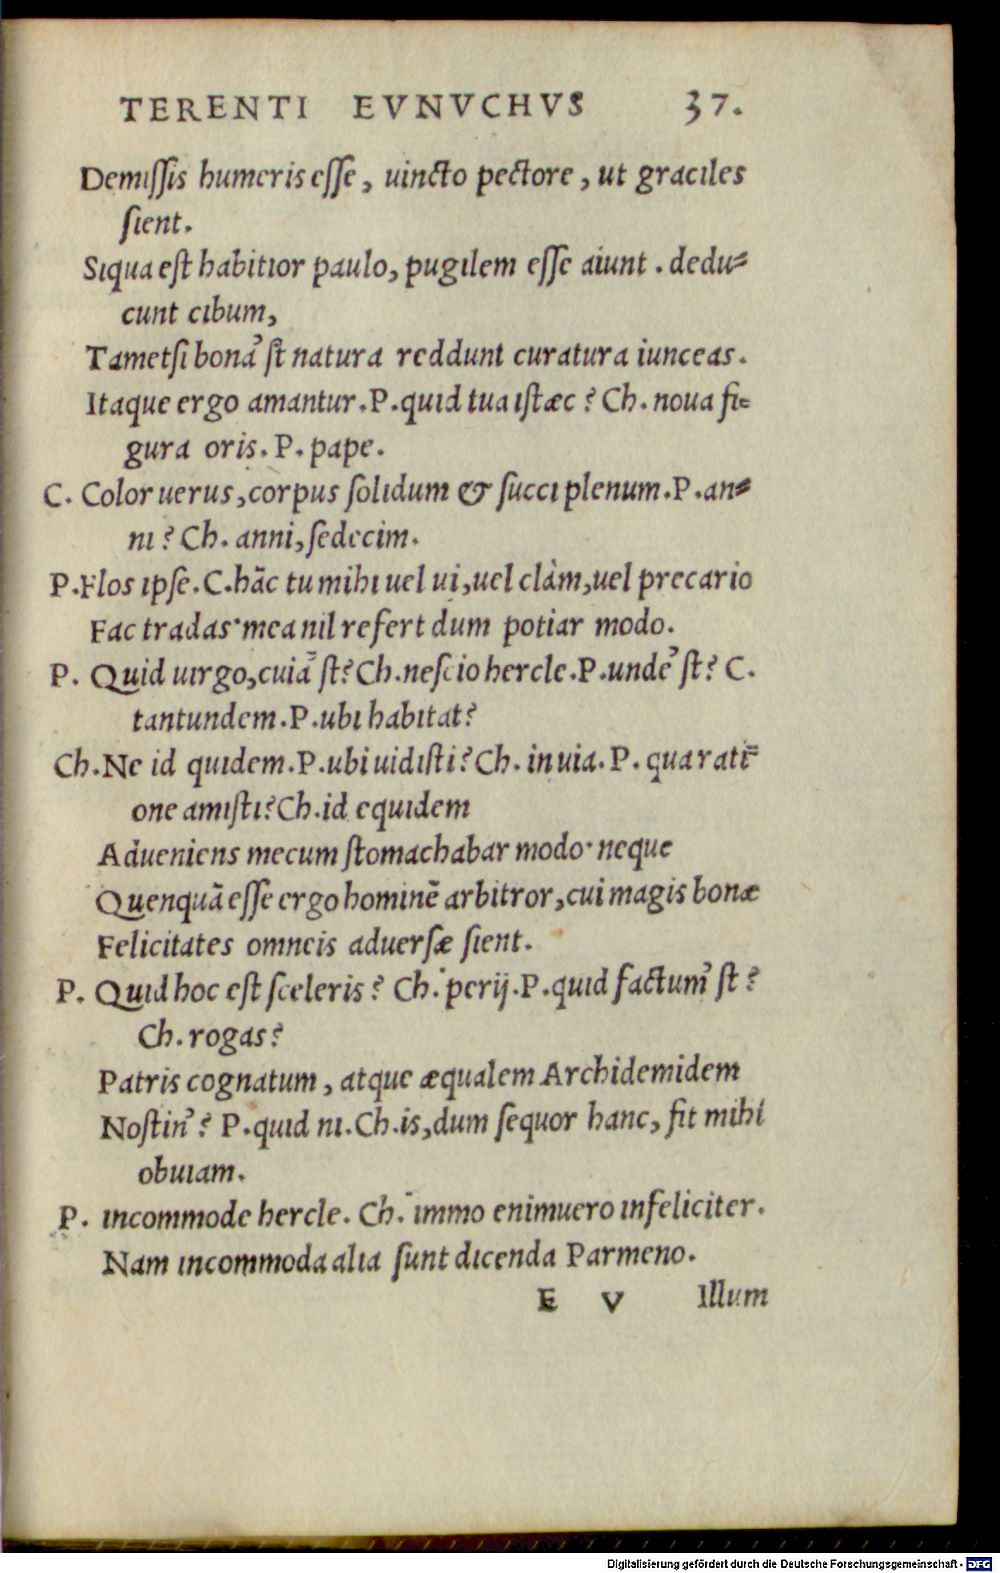 TERENTI EVNVCHVS 37.
Demissis humeris esse, uincto pectore, ut graciles
sient.
Siqua est habitior paulo, pugilem esse aiunt. dedu-
cunt cibum,
Tametsi bona' st natura reddunt curatura iunceas.
Itaque ergo amantur. P. quid tua istæc? Ch. noua fi-
gura oris. P. pape.
C. Color uerus, corpus solidum & succi plenum. P. an-
ni? Ch. anni, sedecim.
P. Flos ipse. C. hãc tu mihi uel ui, uel clàm, uel precario
Fac tradas· mea nil refert dum potiar modo.
P. Quid uirgo, cuiā' st? Ch. nescio hercle. P. unde' st? C.
tantundem. P. ubi habitat?
Ch. Ne id quidem. P. ubi uidisti? Ch. in uia. P. qua rati-
one amisti? Ch. id equidem
Adueniens mecum stomachabar modo· neque
Quenquā esse ergo hominē arbitror, cui magis bonæ
Felicitates omneis aduersæ sient.
P. Quid hoc est sceleris? Ch. perij. P. quid factum' st?
Ch. rogas?
Patris cognatum, atque æqualem Archidemidem
Nostin'? P. quid ni. Ch. is, dum sequor hanc, fit mihi
obuiam.
P. incommode hercle. Ch. immo enimuero infeliciter.
Nam incommoda alia sunt dicenda Parmeno.
E V Illum
Digitalisierung gefördert durch die Deutsche Forschungsgemeinschaft - DFG